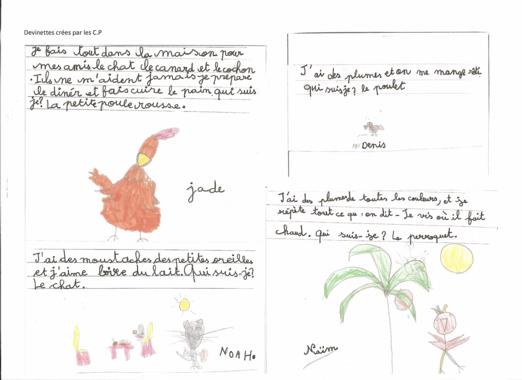 Devinettes crées par les C.P
je fais tout dans la maison pour
mes amis le chat le canard et le cochon
. Ils ne m'aident jamais je prépare
le dinér et fais cuire le pain qui suis
je? La petite poule rousse.
jade
J'ai des moustaches des petites oreilles
et j'aime boire du lait. Qui suis-je?
Le chat.
NOAH.
J'ai des plumes et on me mange rôti
qui suis je? le poulet
Denis
J'ai des plumes de toutes les couleurs, et je
répète tout ce qu'on dit - Je vis où il fait
chaud. Qui suis-je? Le perroquet.
Naïm